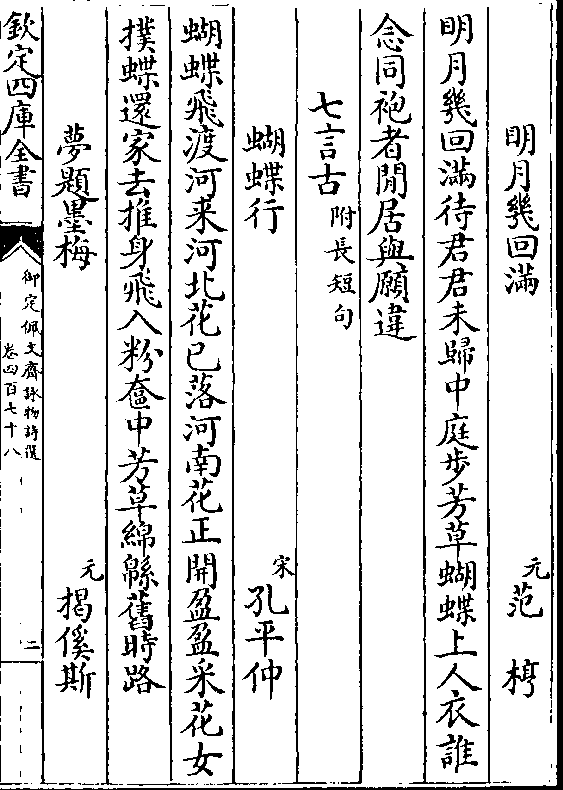 明月幾回滿
元范梈
明月幾回滿待君君未歸中庭步芳草蝴蝶上人衣誰
念同袍者閒居與願違
七言古附長短句
蝴蝶行
宋孔平仲
蝴蝶飛渡河来河北花已落河南花正開盈盈采花女
撲蝶還家去推身飛入粉奩中芳草綿緜舊時路
夢題墨梅
元揭傒斯
欽定四庫全書
御定佩文齋詠物詩選
卷四百七十八
二